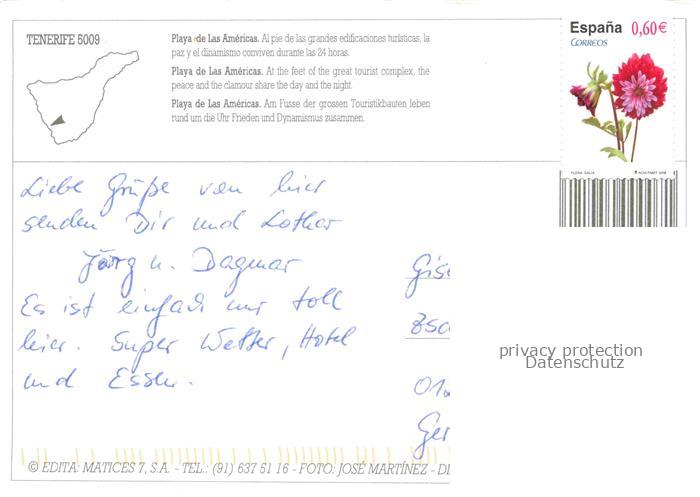 TENERIFE 5009
Playa de Las Américas. Al pie de las grandes edificaciones turísticas, la
paz y el dinamismo conviven durante las 24 horas.
Playa de Las Américas. At the feet of the great tourist complex, the
peace and the clamour share the day and the night.
Playa de Las Américas. Am Fusse der grossen Touristikbauten leben
rund um die Uhr Frieden und Dynamismus zusammen.
España 0,60€
CORREOS
Liebe Grüße von hier
senden Dir und Lothar
Jörg u. Dagmar
Es ist einfach nur toll
hier. Super Wetter, Hotel
und Essen.
Gis
Zsc
01
Ger
privacy protection
Datenschutz
© EDITA: MATICES 7, S.A. - TEL.: (91) 637 51 16 - FOTO: JOSÉ MARTÍNEZ -